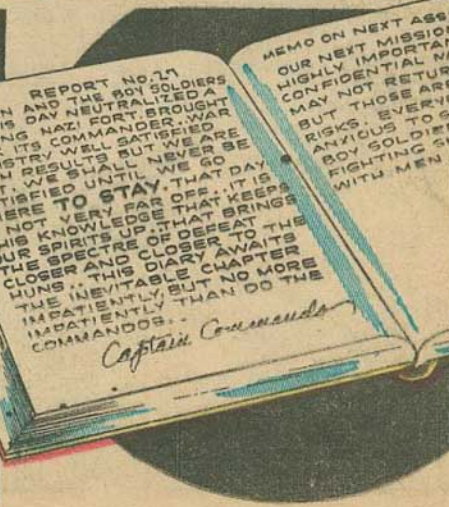 REPORT NO. 27
N AND THE BOY SOLDIERS
IS DAY NEUTRALIZED A
NG NAZI FORT, BROUGHT
ITS COMMANDER. WAR
STRY WELL SATISFIED
H RESULTS BUT WE ARE
T. WE SHALL NEVER BE
TISFIED UNTIL WE GO
ERE TO STAY. THAT DAY
NOT VERY FAR OFF.. IT IS
HIS KNOWLEDGE THAT KEEPS
UR SPIRITS UP.. THAT BRINGS
THE SPECTRE OF DEFEAT
CLOSER AND CLOSER TO THE
HUNS.. THIS DIARY AWAITS
THE INEVITABLE CHAPTER
IMPATIENTLY, BUT NO MORE
IMPATIENTLY THAN DO THE
COMMANDOS..
Captain Commando
MEMO ON NEXT ASS
OUR NEXT MISSION
HIGHLY IMPORTAN
CONFIDENTIAL
MAY NOT RETUR
BUT THOSE ARE
RISKS. EVERY
ANXIOUS TO S
BOY SOLDIE
FIGHTING S
WITH MEN